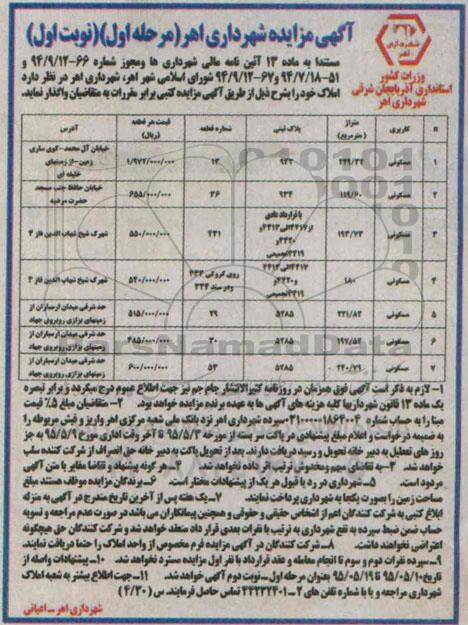 آگهی مزایده شهرداری اهر (مرحله اول)(نوبت اول)
شهرداری
وزرات کشور
استانداری آذربایجان شرقی
شهرداری اهر
مستندا به ماده ۱۳ آئین نامه مالی شهرداری ها ومجوز شماره ۶۶-۹۴/۹/۱۲ و
۵۱-۹۴/۷/۱۸ و ۶۷-۹۴/۹/۱۲ شورای اسلامی شهر اهر، شهرداری اهر در نظر دارد
املاک خود را بشرح ذیل از طریق آگهی مزایده کتبی برابر مقررات به متقاضیان واگذار نماید.
n کاربری متراژ (مترمربع) پلاک ثبتی شماره قطعه قیمت هر قطعه (ریال) آدرس
۱ مسکونی ۲۴۹/۳۲ ۹۳۳ ۱۳ ۱/۹۷۲/۰۰۰/۰۰۰ خیابان آل محمد-کوی ساری زمین-از زمینهای خلیفه ای
۲ مسکونی ۱۱۹/۶۰ ۹۳۴ ۳۶ ۶۵۵/۰۰۰/۰۰۰ خیابان حافظ جنب مسجد حضرت مرضیه
۳ مسکونی ۱۹۳/۷۳ ۴۳۱ ۵۵۰/۰۰۰/۰۰۰ شهرک شیخ شهاب الدین فاز ۴
۴ مسکونی ۱۸۰ روی کروکی ۴۳۳ ودرسند ۳۳۴ ۵۴۰/۰۰۰/۰۰۰ شهرک شیخ شهاب الدین فاز ۴
۵ مسکونی ۲۲۱/۸۲ ۵۲۸۵ ۲۹ ۵۱۵/۰۰۰/۰۰۰ حد شرقی میدان ارسباران از زمینهای بزازی روبروی جهاد
۶ مسکونی ۱۹۷/۵۲ ۵۲۸۵ ۳۰ ۴۸۵/۰۰۰/۰۰۰ حد شرقی میدان ارسباران از زمینهای بزازی روبروی جهاد
۷ مسکونی ۲۲۰/۷۹ ۵۲۸۵ ۵۳ ۶۰۰/۰۰۰/۰۰۰ حد شرقی میدان ارسباران از زمینهای بزازی روبروی جهاد
ParsNamadData
۱- لازم به ذکر است آگهی فوق همزمان در روزنامه کثیرالانتشار جام جم نیز جهت اطلاع عموم درج میگردد و برابر تبصره
یک ماده ۱۳ قانون شهرداریها کلیه هزینه های آگهی ها به عهده برنده مزایده خواهد بود. ۲- متقاضیان مبلغ ۵٪ قیمت
مبنا را به حساب شماره سپرده شهرداری اهر نزد بانک ملی شعبه مرکزی اهر واریز و فیش مربوطه را
به ضمیمه درخواست و اعلام مبلغ پیشنهادی در پاکت سر بسته از مورخه ۹۵/۵/۳ تا آخر وقت اداری مورخ ۹۵/۵/۹ به جز
روز های تعطیل به دبیر خانه تحویل و رسید دریافت دارند. بعد از تحویل پاکت به دبیر خانه حق انصراف از شرکت کننده سلب
خواهد شد. ۳- به تقاضای مبهم ومخدوش ترتیب اثر داده نخواهد شد. ۴- هر گونه پیشنهاد و تقاضا مغایر با متن آگهی
مردود است. ۵- شهرداری در رد یا قبول هر یک از پیشنهادات مختار است. ۶- برندگان مزایده موظف هستند مبلغ
مساحت زمین را بصورت یکجا به شهرداری پرداخت نمایند. ۷- یک هفته پس از آخرین تاریخ مندرج در آگهی به منزله
ابلاغ کتبی به شرکت کنندگان اعم از اشخاص حقیقی و حقوقی و همچنین پیمانکاران می باشد در صورت عدم مراجعه و تسویه
حساب ضمن ضبط سپرده به نفع شهرداری به ترتیب با نفرات بعدی قرار داد منعقد خواهد شد و شرکت کنندگان حق هیچگونه
اعتراضی نخواهند داشت. ۸- شرکت کنندگان در آگهی مزایده فرم مخصوص از واحد املاک را حتما دریافت نمایند.
۹- سپرده نفرات دوم و سوم تا انجام معامله و عقد قرارداد با نفر اول مزایده مسترد نخواهد شد. ۱۰- پیشنهادات واصله از
تاریخ ۹۵/۰۵/۱۰ تا ۹۵/۰۵/۱۹ بعنوان مرحله اول-نوبت دوم آگهی خواهد شد. ۱۱- جهت اطلاع بیشتر به شعبه املاک
شهرداری مراجعه و یا با شماره تلفن های ۲-۴۴۲۳۲۴۰۱ تماس حاصل فرمایند. س (۴/۳۰)
شهرداری اهر - اعیانی